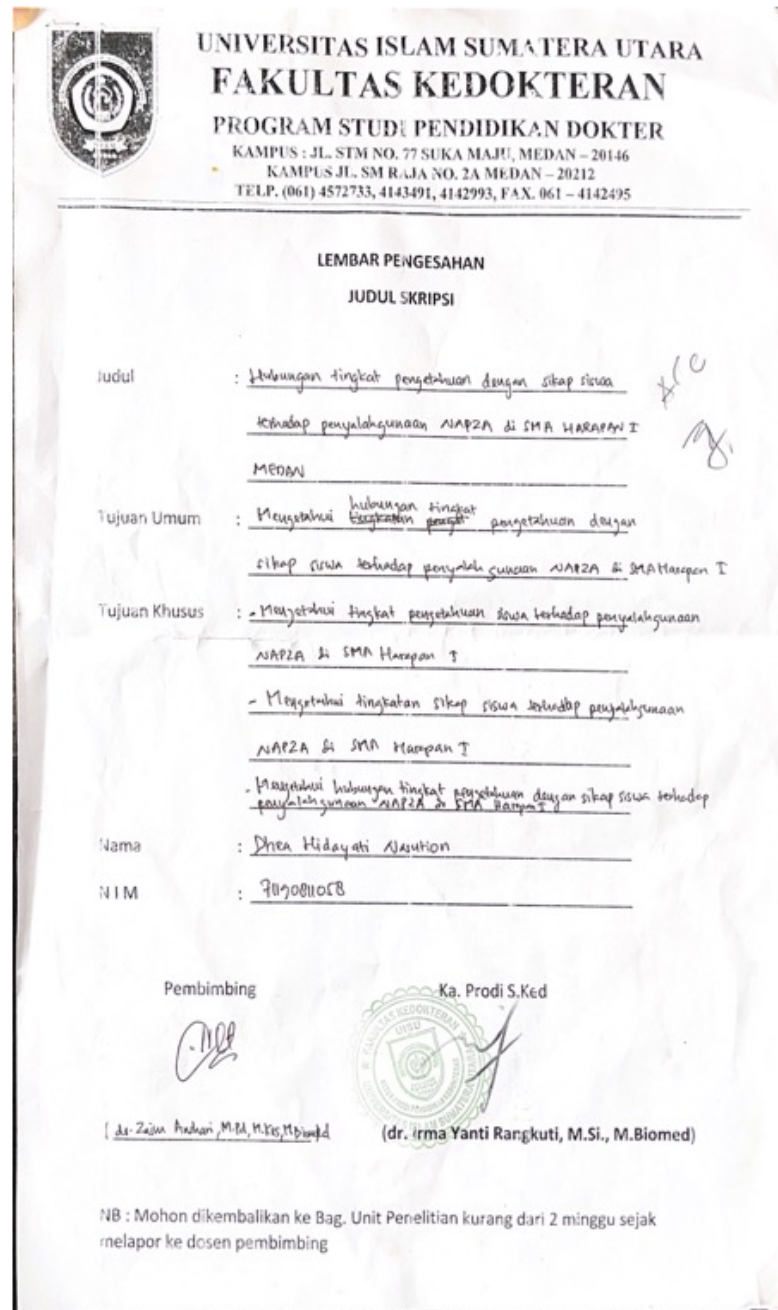 UNIVERSITAS ISLAM SUMATERA UTARA
FAKULTAS KEDOKTERAN
PROGRAM STUDI PENDIDIKAN DOKTER
KAMPUS : JL. STM NO. 77 SUKA MAJU, MEDAN – 20146
KAMPUS JL. SM RAJA NO. 2A MEDAN – 20212
TELP. (061) 4572733, 4143491, 4142993, FAX. 061 – 4142495
LEMBAR PENGESAHAN
JUDUL SKRIPSI
Judul : Hubungan tingkat pengetahuan dengan sikap siswa
terhadap penyalahgunaan NAPZA di SMA HARAPAN I
MEDAN
Tujuan Umum : Mengetahui hubungan tingkat pengetahuan dengan
sikap siswa terhadap penyalah gunaan NAPZA di SMA Harapan I
Tujuan Khusus : - Mengetahui tingkat pengetahuan siswa terhadap penyalahgunaan
NAPZA di SMA Harapan I
- Mengetahui tingkatan sikap siswa terhadap penyalahgunaan
NAPZA di SMA Harapan I
- Mengetahui hubungan tingkat pengetahuan dengan sikap siswa terhadap
penyalahgunaan NAPZA di SMA Harapan I
Nama : Dhea Hidayati Nasution
NIM :
Pembimbing Ka. Prodi S.Ked
FAKULTAS KEDOKTERAN
UISU
UNIVERSITAS ISLAM SUMATERA UTARA
(dr. M.Pd, M.Kes, M.Biomed
(dr. Irma Yanti Rangkuti, M.Si., M.Biomed)
NB : Mohon dikembalikan ke Bag. Unit Penelitian kurang dari 2 minggu sejak
melapor ke dosen pembimbing